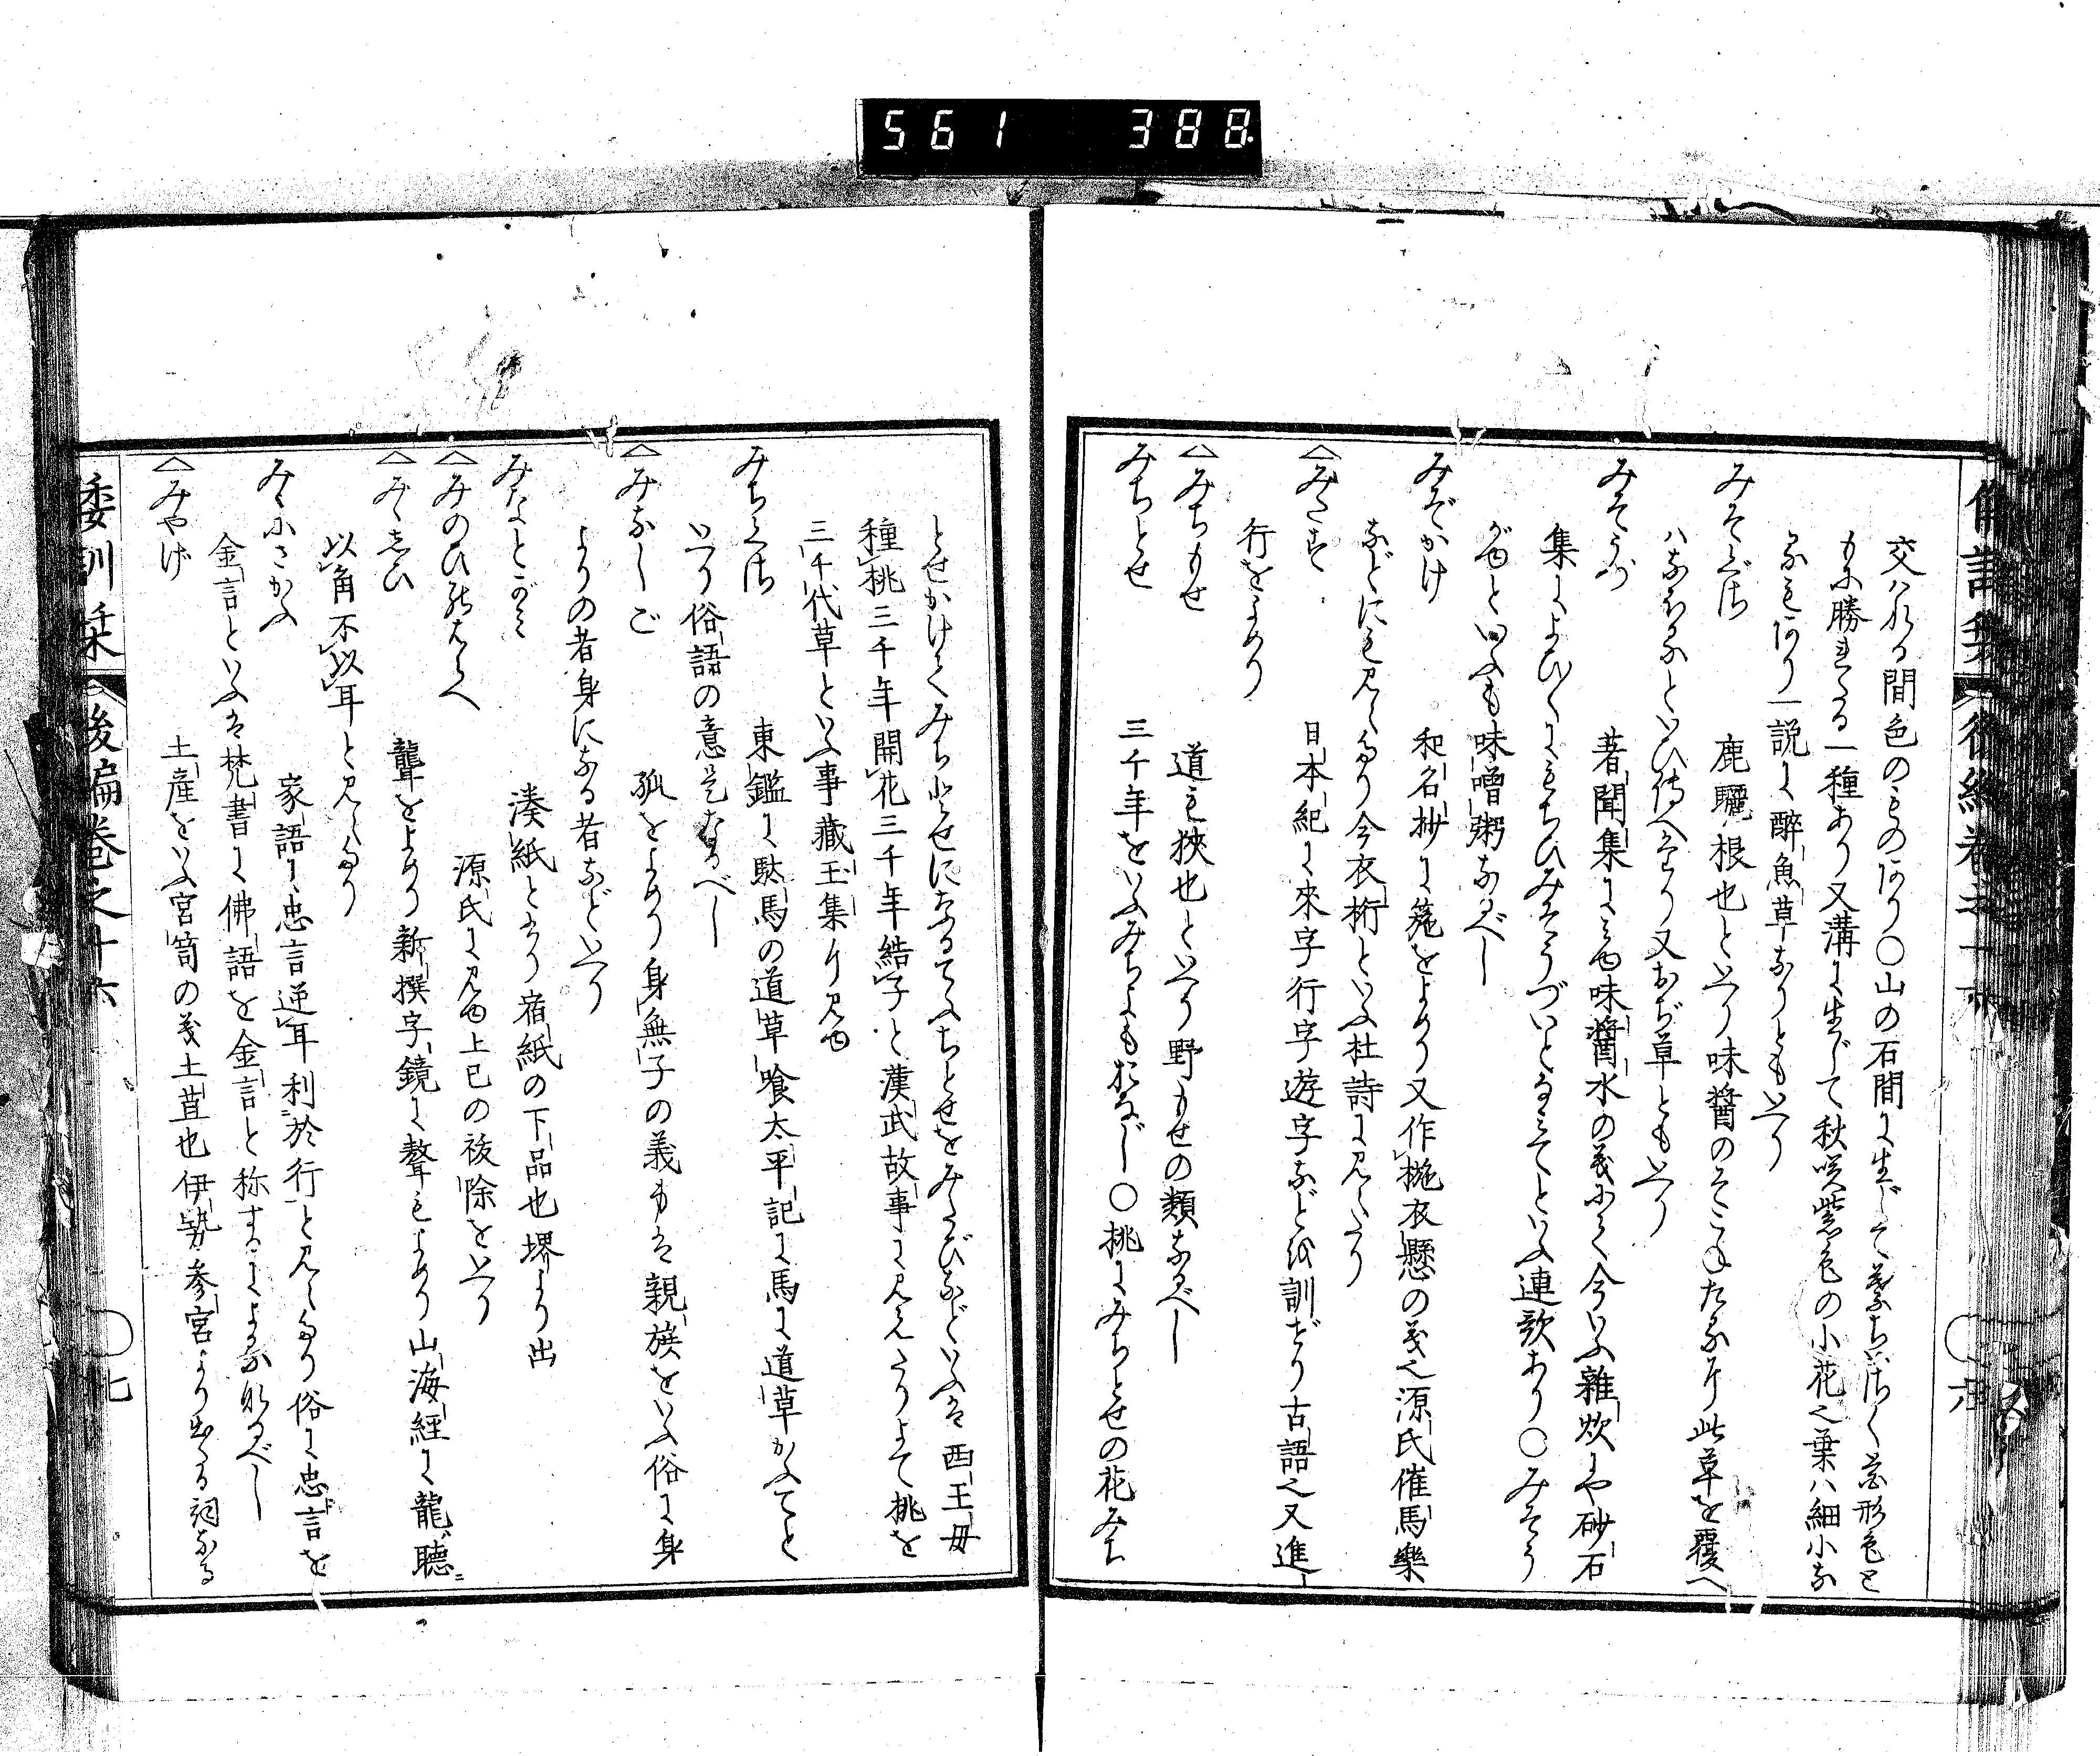 561 388
交ハれる間色のものあり〇山の石間に生じて葉ちいさく花形色と
もに勝れたる一種あり又溝に生じて秋咲紫色の小花之葉ハ細小な
るもあり一説に醉魚草なりともいへり
みそくさ 鹿驪根也といへり味醬のそこねたるに此草を覆へ
ハなほるといひ傳へたり又おぢ草ともいへり
みそうづ 著聞集にみゆ味醬水の義にて今いふ雜炊にや砂石
集によひ〳〵にもちひみそうづいとなみてといふ連歌あり〇みそう
がゆといふも味噌粥なるべし
みぞかけ 和名抄に箷をよめり又作椸衣懸の義之源氏催馬樂
などにも見えたり今衣桁といふ杜詩に見えたり
△みたす 日本紀に來字行字遊字などを訓ぜり古語之又進
行をよめり
△みちもせ 道も狹也といへり野もせの類なるべし
みちとせ 三千年をいふみちよもおなじ〇桃にみちとせの花みち
とせかけてみちとせになるてふちとせをみたびなどいふは西王母
種桃三千年開花三千年結子と漢武故事に見えたりよて桃を
三千代草といふ事藏玉集に見ゆ
みちくさ 東鑑に駄馬の道草喰太平記に馬に道草かふてと
いへり俗語の意是なるべし
△みなしご 孤をよめり身無子の義身は親族をいふ俗に身
よりの者身になる者などいへり
みなとがミ 湊紙とかけり宿紙の下品也堺より出
△みのひのはらへ 源氏に見ゆ上巳の祓除をいへり
△みゝしひ 聾をよめり新撰字鏡に聱もよめり山海經に龍聽
以角不以耳と見えたり
みゝにさかふ 家語に忠言逆耳利於行と見えたり俗に忠言を
金言といふは梵書に佛語を金言と称するによるなるべし
△みやげ 土産をいふ宮笥の義土苴也伊勢参宮より出たる詞なる
倭訓栞 後編巻之十六 〇七